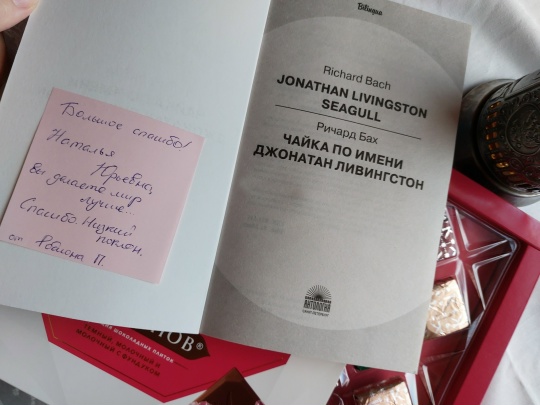 Большое спасибо!
Наталья
Юрьевна,
вы делаете мир
лучше..
Спасибо. Низкий
поклон.
от Романа П.
Bilingua
Richard Bach
JONATHAN LIVINGSTON
SEAGULL
Ричард Бах
ЧАЙКА ПО ИМЕНИ
ДЖОНАТАН ЛИВИНГСТОН
АНТОЛОГИЯ
САНКТ-ПЕТЕРБУРГ
НОВ®
ШОКОЛАДНЫХ ПЛИТОК
ТЕМНЫЙ, МОЛОЧНЫЙ И
МОЛОЧНЫЙ С ФУНДУКОМ